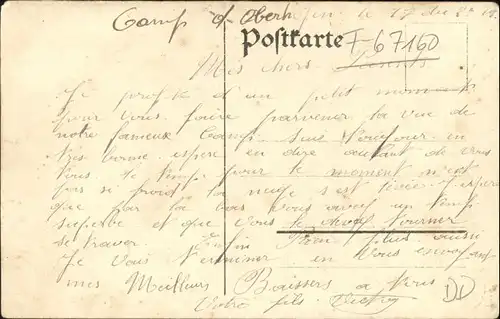 Camp d'Oberh fen le 19 du 2e 19
Postkarte
F-67160
Mes chers Parents
Je profite d'un petit moment
pour vous faire parvenir la vue de
notre fameux Camp. Suis toujours en
très bonne espère en dire autant de vous
tous. le temps pour le moment n'est
pas si froid la neige s'est levée. J'espère
que par la bas vous avez un temps
superbe et que vous
se trouver Enfin Rien plus aussi
Je vous terminer en vous envoyant
mes Meilleurs Baisers a vous
Votre fils
DD